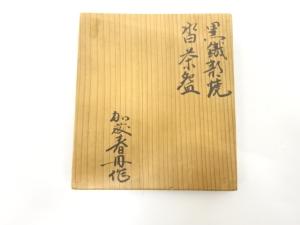 黒織部焼
沓茶盌
加藤春丹作